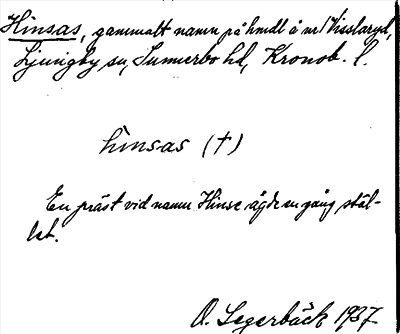 Hinsas, gammalt namn på hmdl å nr 1 Visslaryd,
Ljungby sn, Sunnerbo hd, Kronob. l.
hinsas (†)
En präst vid namn Hinse ägde en gång stäl-
let.
O. Segerbäck 1937